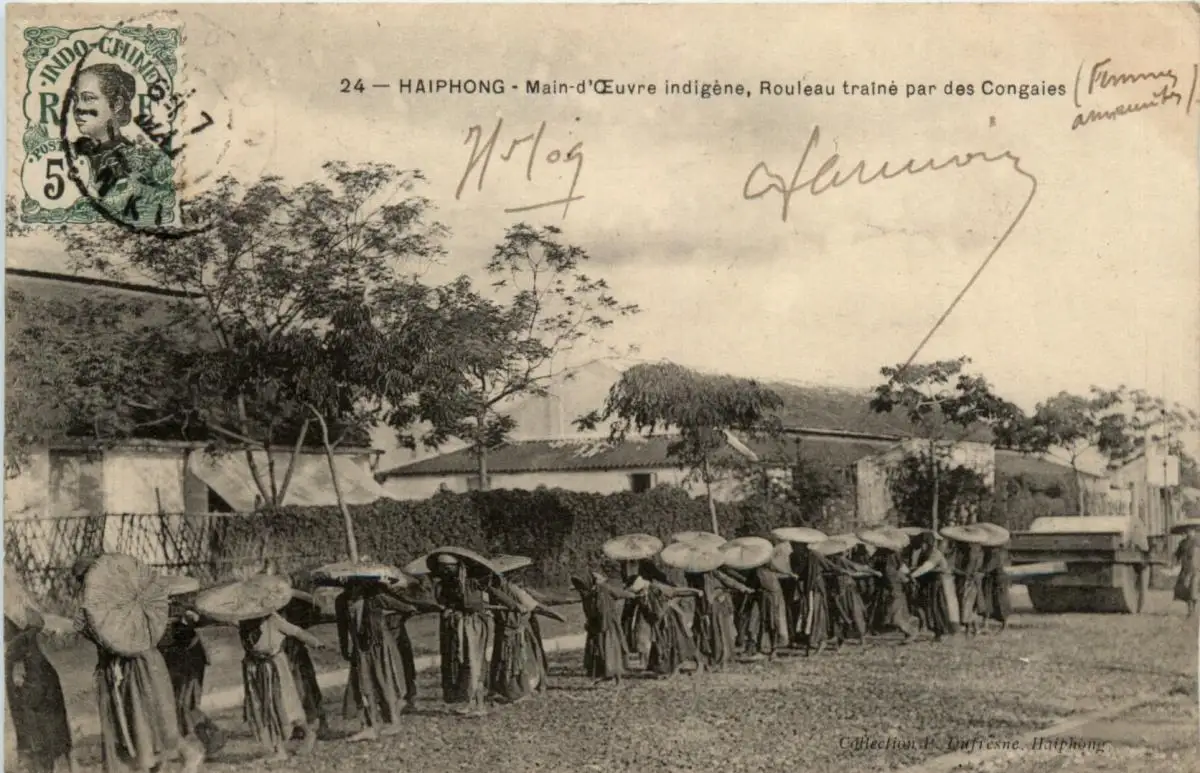 INDO-CHINE
R F
POSTES
5c
24 — HAIPHONG - Main-d'Œuvre indigène, Rouleau traîné par des Congaies
(Femmes
annamites)
7/5/09
Collection P. Dufresne, Haiphong